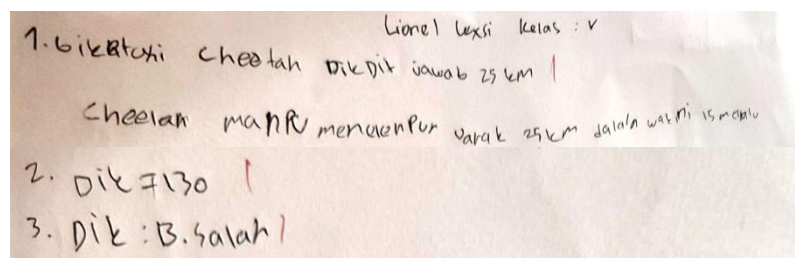 Lionel Lexsi Kelas : V
1. Cheetah Dik Dit Jawab 25 km
Cheelah manpu menempur Jarak 25 km dalaln waktni 15 menlu
2. Dik = 130
3. Dik : B. Salah